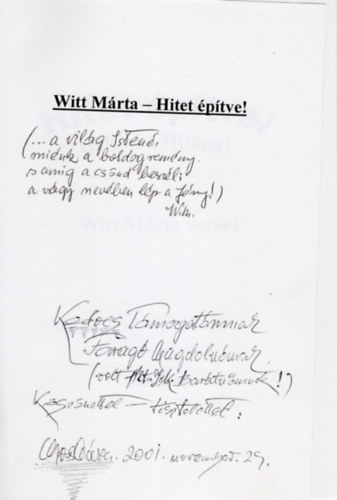 Witt Márta – Hitet építve!
(... a világ Istené,
miénk a boldog remény.
s amíg a csönd beszéli
a vágy nevében lép a fény!)
W.m.
Kedves Támogatómnak
Faragó Magdolnának.
(volt
!)
Köszönettel – tisztelettel:
2001. november. 29.